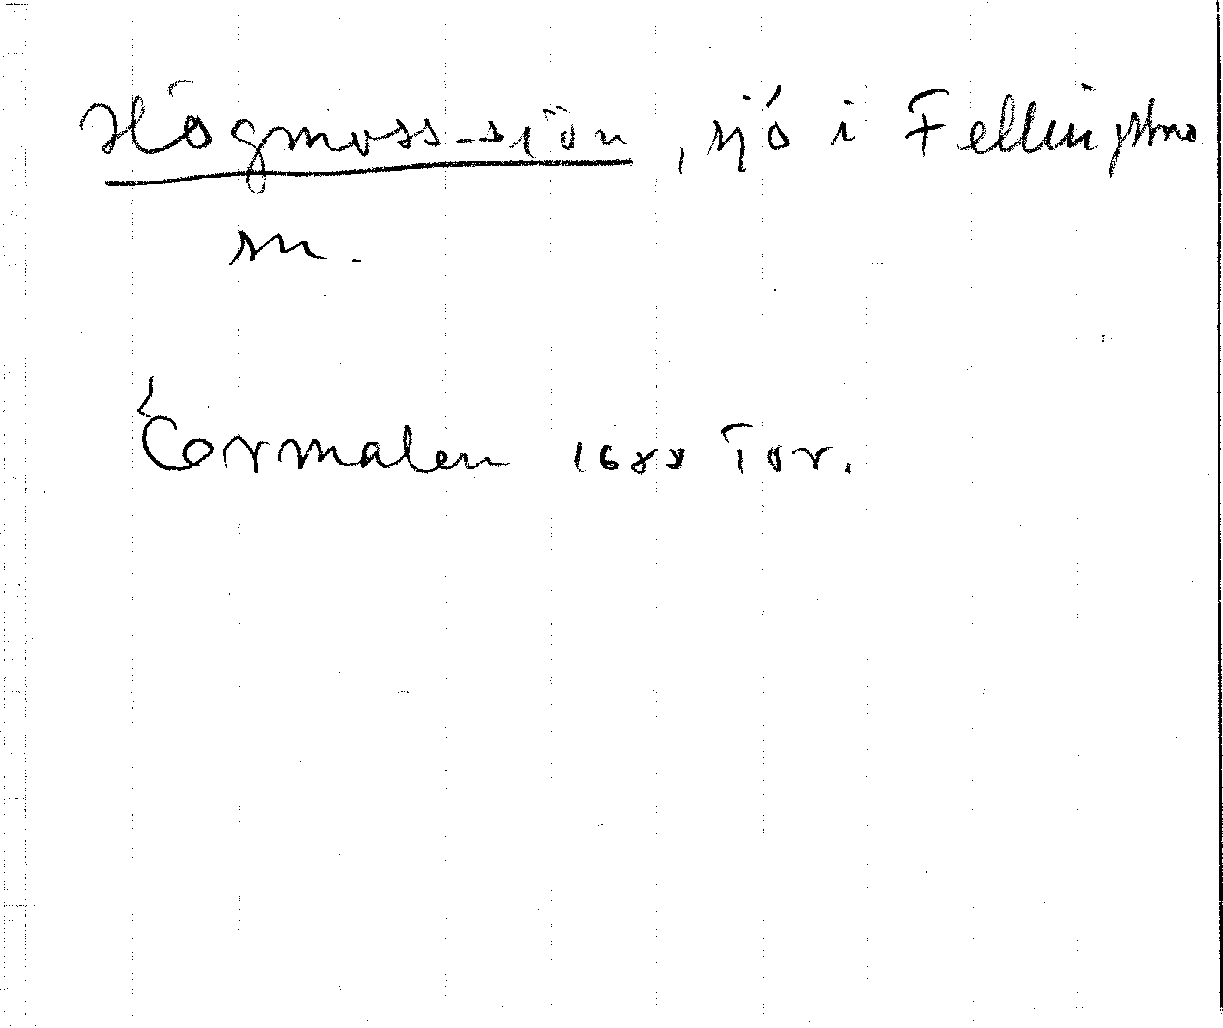 Högmoss-siön, sjö i Fellingsbro
sn.
Öormalen 1688 Tor.